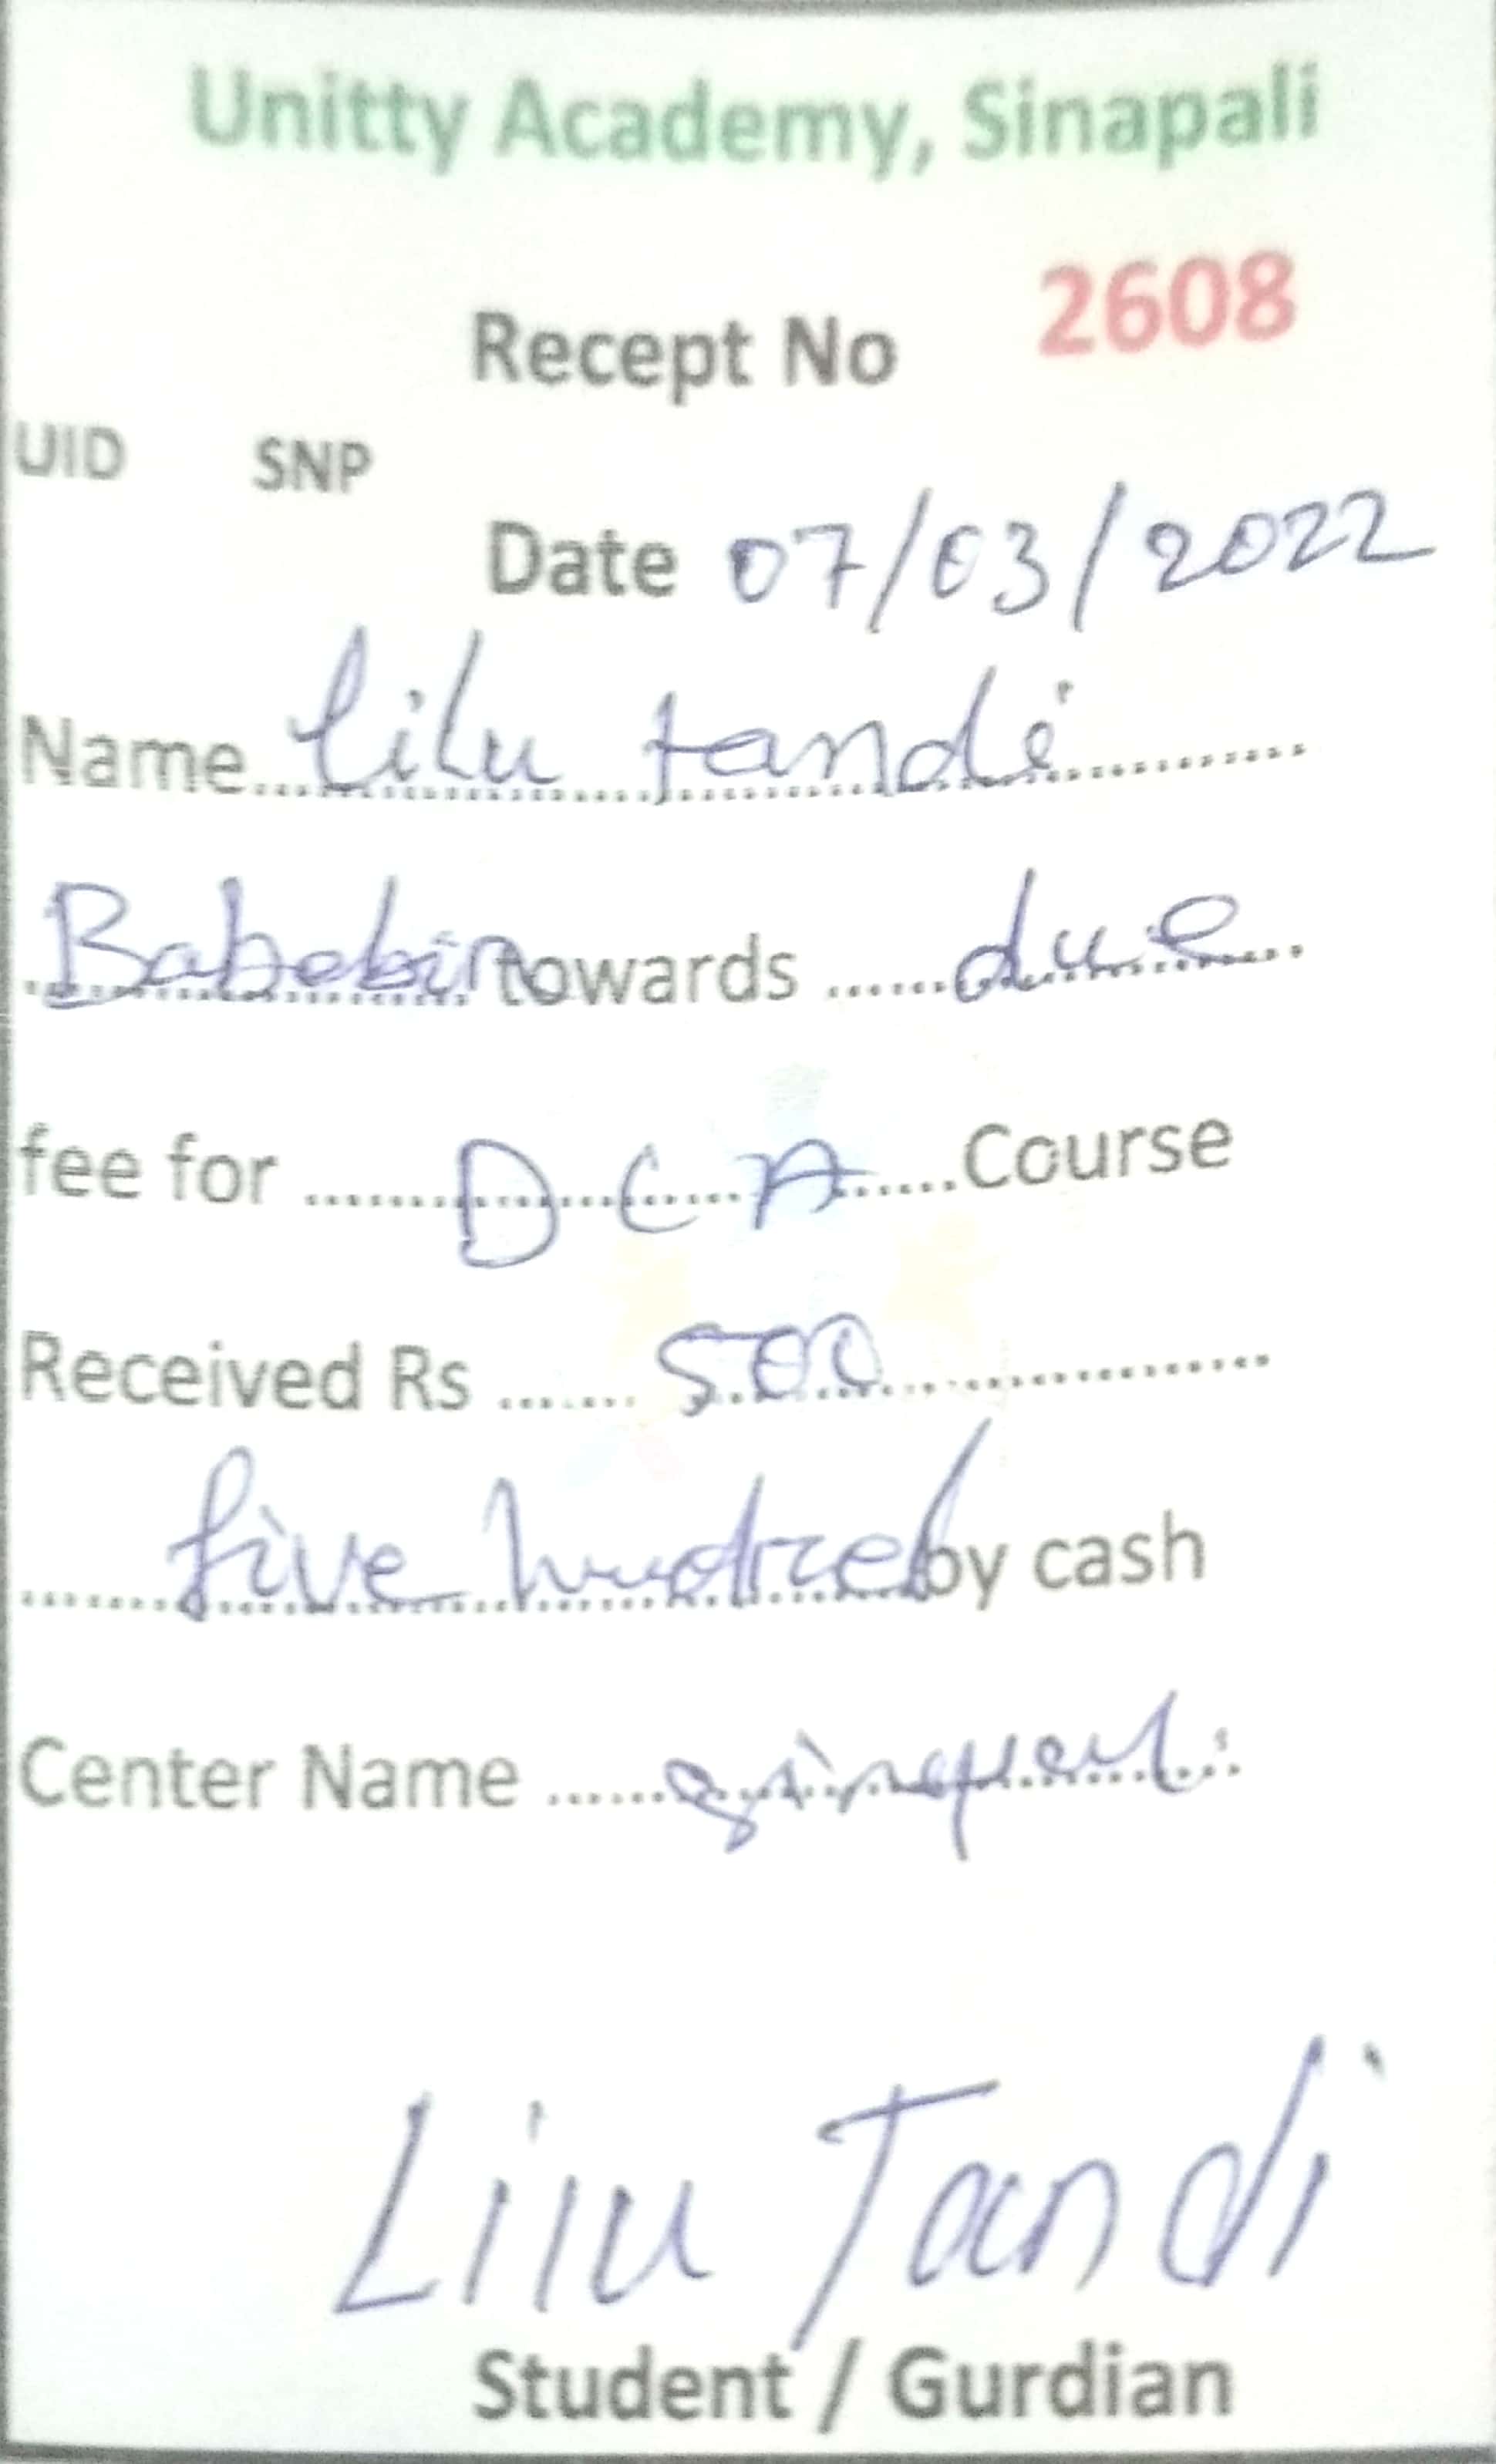 Unitty Academy, Sinapali
Recept No 2608
UID SNP
Date 07/03/2022
Name lilu tandi
towards due
fee for D C A Course
Received Rs 500
five hudred by cash
Center Name sinapali
Lilu Tandi
Student / Gurdian